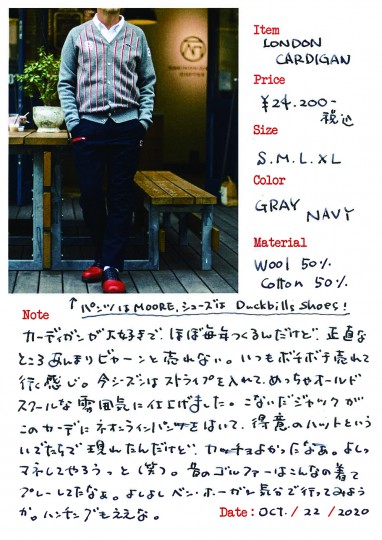 Item
LONDON
CARDIGAN
Price
¥24.200-
税込
Size
S.M.L.XL
Color
GRAY
NAVY
Material
Wool 50%
Cotton 50%
↑ パンツはMOORE.シューズは Duckbills Shoes!
Note
カーディガンが大好きで、ほぼ毎年つくるんだけど、正直な
ところあんまりビャーンと売れない。いつもボチボチ売れて
行く感じ。今シーズンはストライプを入れて、めっちゃオールド
スクールな雰囲気に仕上げました。こないだジャックが
このカーデにネオンラインパンツをはいて、得意のハットという
いでたちで現れたんだけど、カッチョよかったなぁ。よしっ
マネしてやろうっと(笑)。昔のゴルファーはこんなの着て
プレーしてたなぁ。よしよしベン・ホーガン気分で行ってみよう
か。ハンチングもええな。
Date: OCT. / 22 / 2020